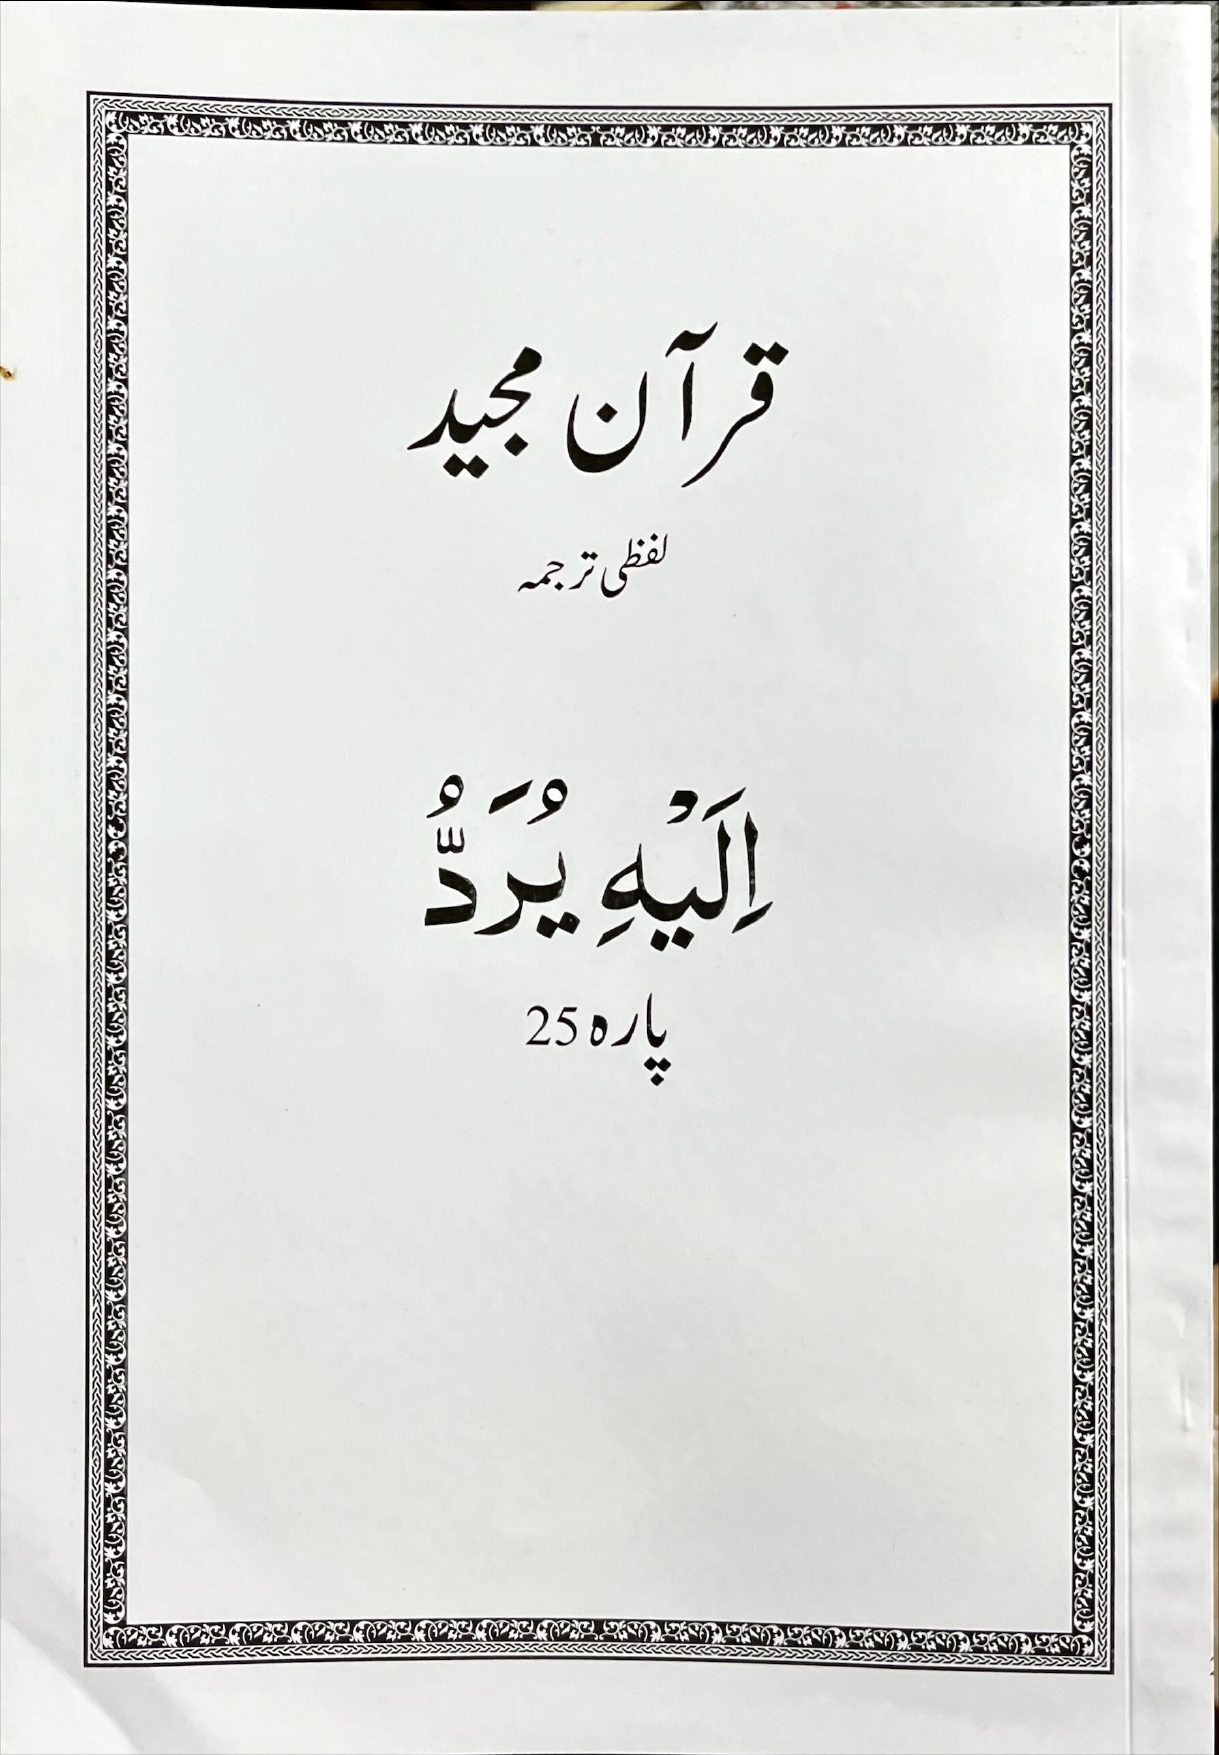 قرآن مجید
لفظی ترجمہ
اِلَیْهِ یُرَدُّ
پارہ 25